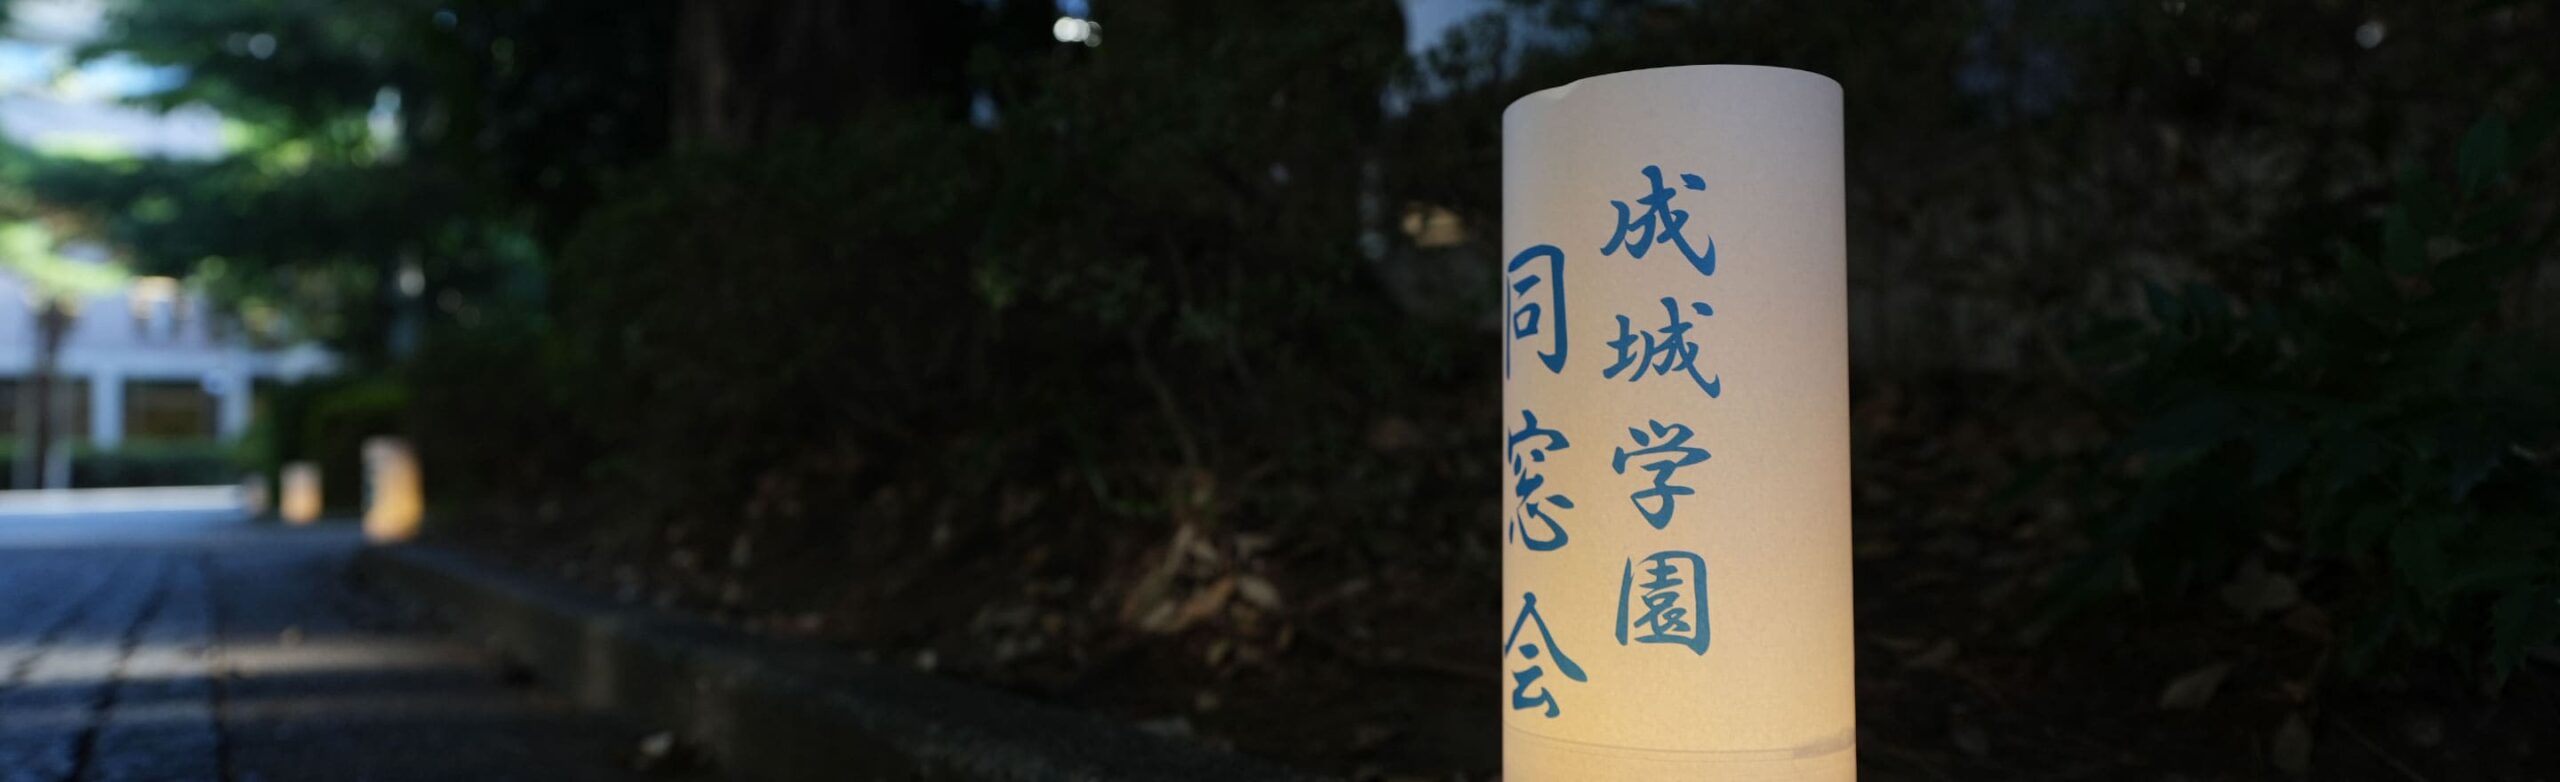 成城学園
同窓会